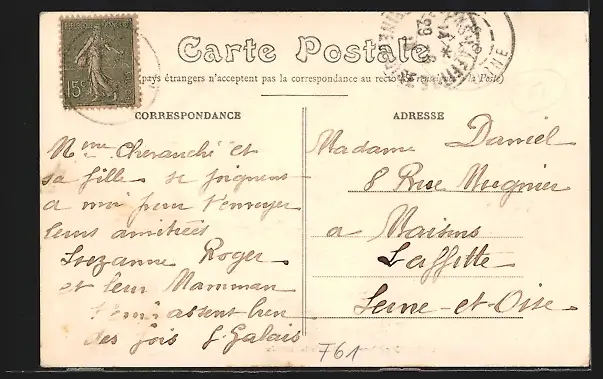 15c
Carte Postale
(pays étrangers n'acceptent pas la correspondance au recto
à la Poste)
CORRESPONDANCE
Mme Cheranché et
sa fille se joignent
a moi pour t'envoyer
leurs amitiées
Suzanne Roger
et leur Mamman
t'embrassent bien
des fois G. Galais
ADRESSE
Madame Daniel
8 Rue Mugnier
a Maisons
Laffitte
Seine-et-Oise
761